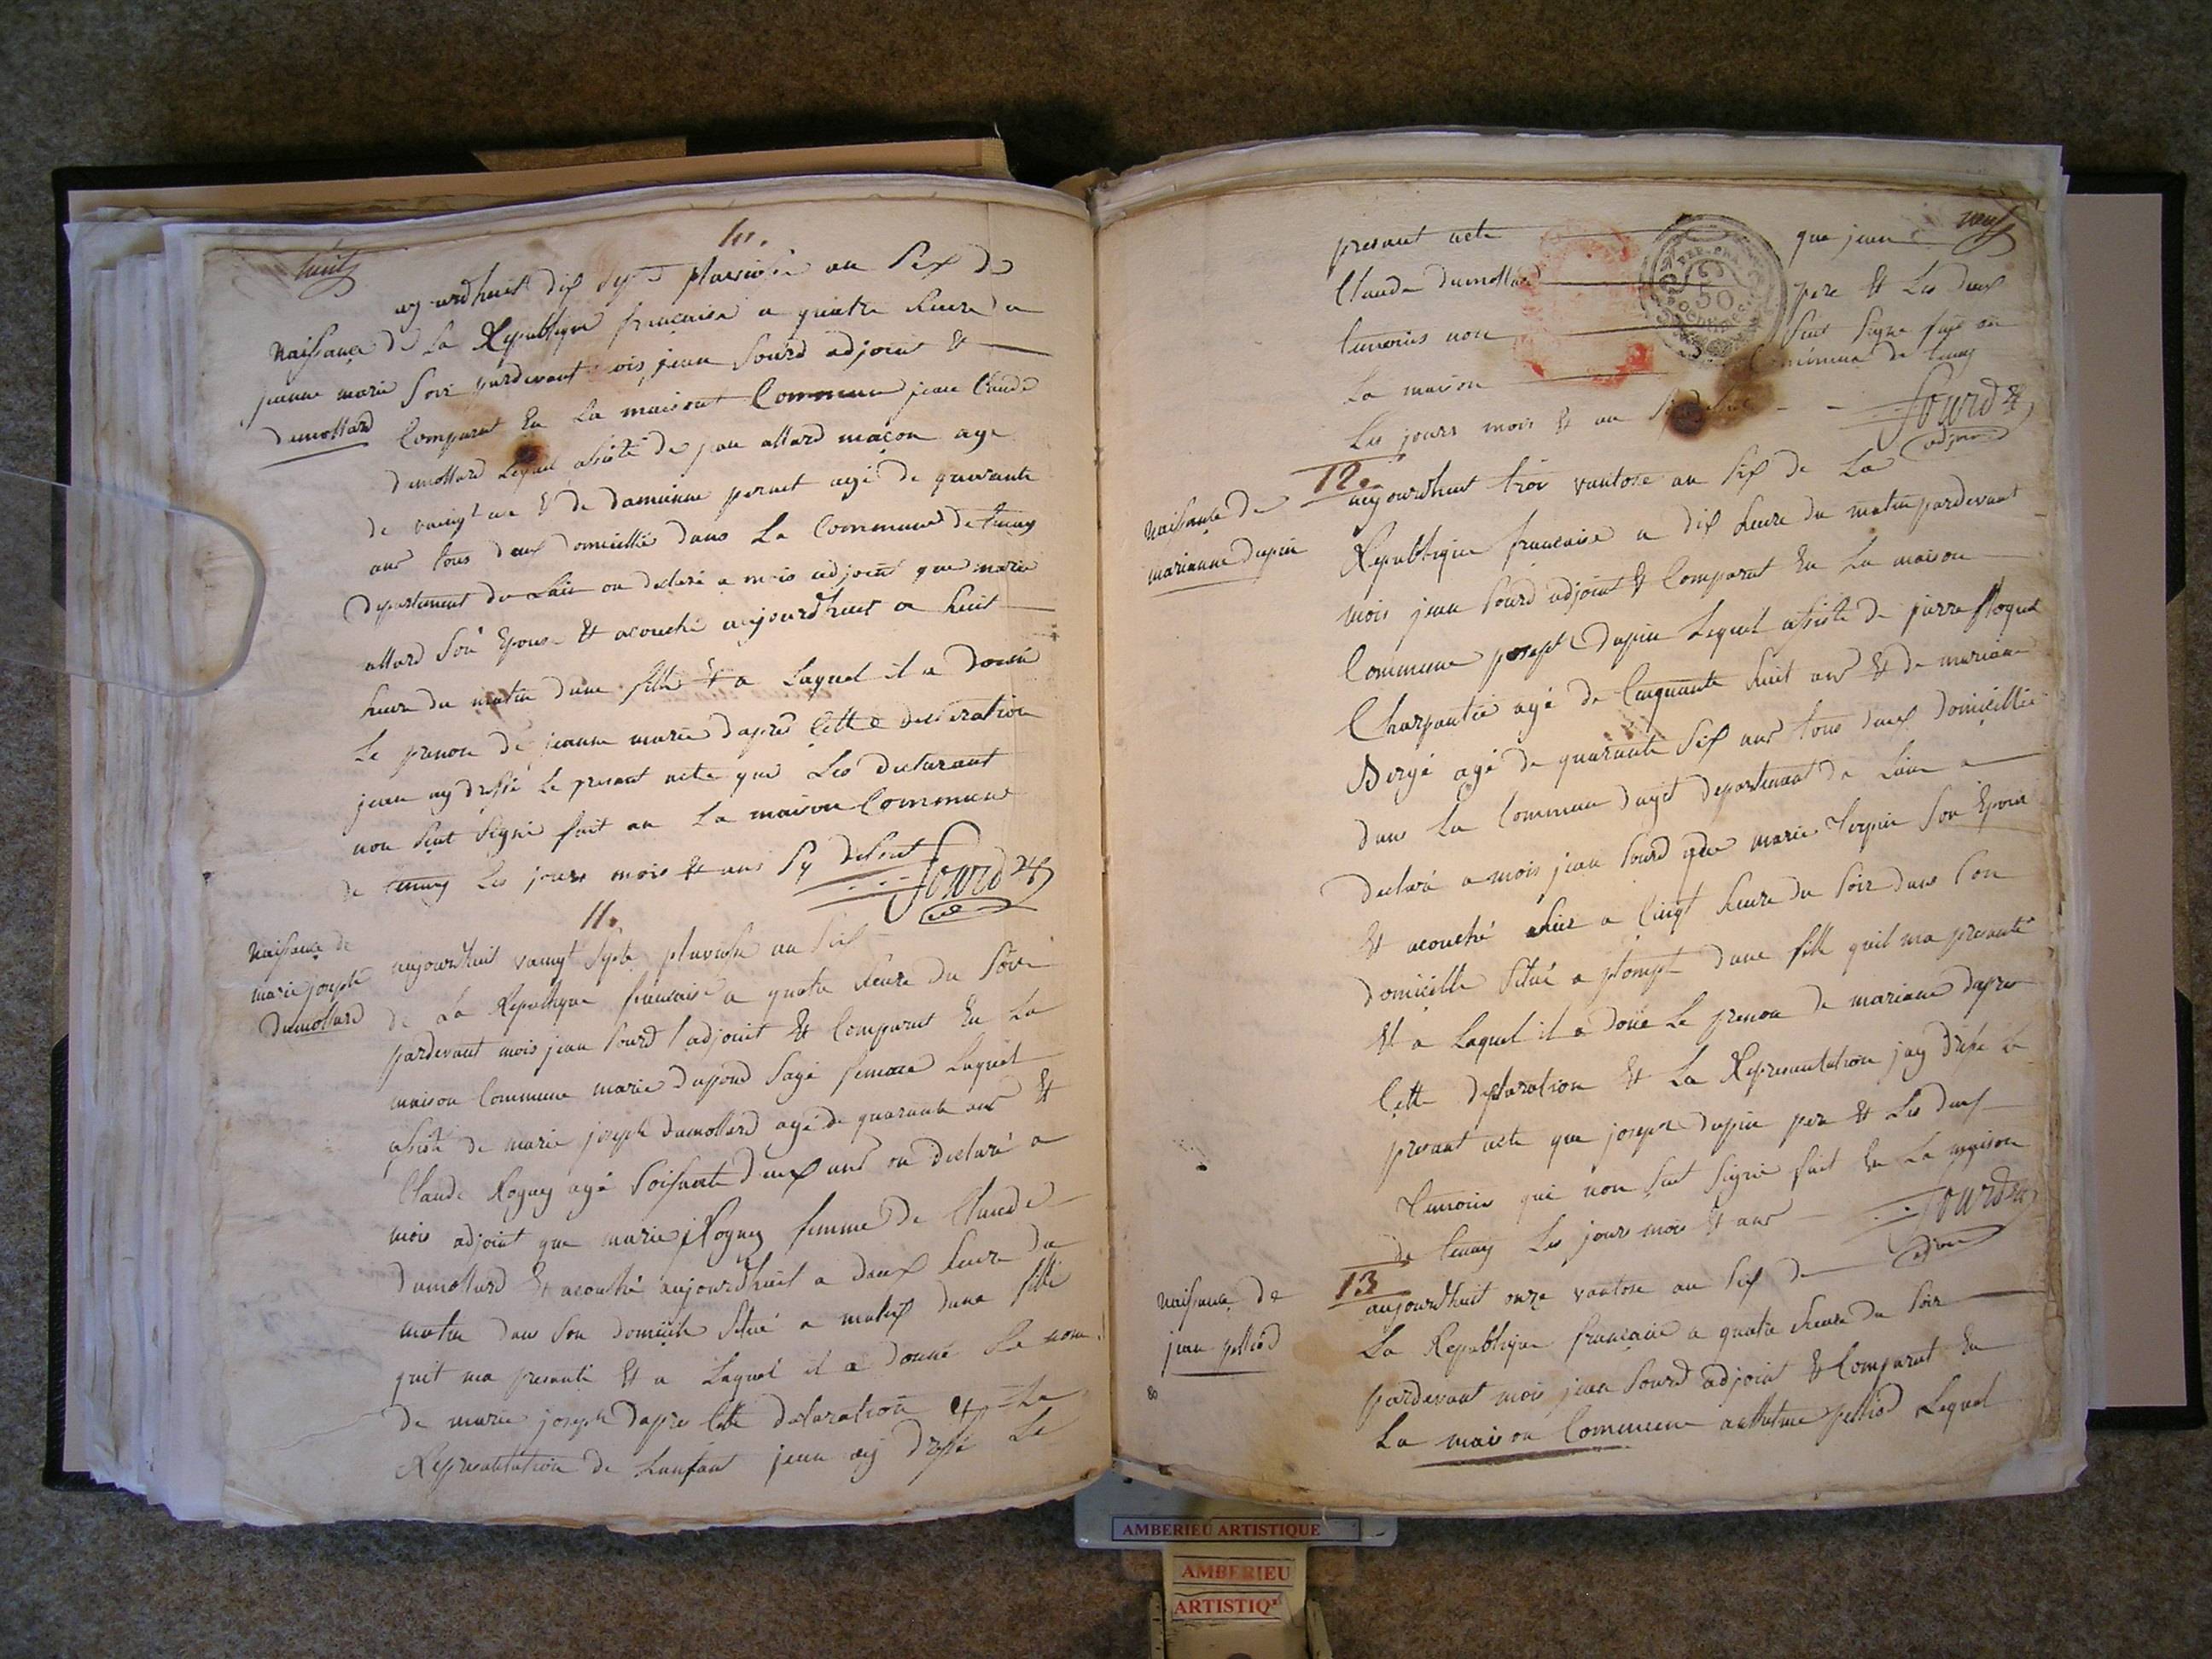 huit
10.
aujourdhuit dix sept pluviose an six de
Naissance de
jeanne marie
dumollard
La Republique francaise a quatre heure du
Soir pardevant mois jean Sourd adjoint &
Comparut En La maison Commune jean Claude
dumollard Lequel assisté de jean allard macon age
de vaingt &  de damienne pernet agé de quarante
ans tous deux domicillié dans La Commune de tenay
departement de Lain on declaré a mois adjoint que marie
allard Son Epouse Et acouché aujourdhuit a huit
heure du matin dune fille Et a Laquel il a donné
Le prenon de jeanne marie dapres Cette declaration
jean ay dressé Le presant acte que Les declarant
non Seut Signé fait an La maison Commune
de tenay Les jours mois & ans Sy desut
Sourd
11.
Naissance de
marie joseph
Dumollard
aujourdhuit vaingt Septe pluviose an Six
de La Republique francaise a quatre heure du Soir
pardevant mois jean Sourd adjoint Et Comparut En La
maison Commune marie dupond Sage femme Laquel
assisté de marie joseph dumollard agé de quarante ans Et
Claude Roguey agé Soisante deux ans on declaré a
mois adjoint que marie Roguey femme de Claude
dumollard Et acouché aujourdhuit a deux heure du
matin dans Son domicile Situé a  dune fille
quit ma presanté Et a Laquel il a donné Le nom
de marie joseph dapres Cette declaration Et La
Representation de Lanfant jean ay dressé Le
neuf
presant acte que jean
Claude dumollard pere Et Les deux
temoins non Seut Signe fait an
La maison Commune de tenay
Les jours mois Et an Sy desut
Sourd
adjoint
12e
Naissance de
marianne dupin
aujourdhuit trois vantose an Six de La
Republique francaise a dix heure du matin pardevant
mois jean Sourd adjoint Et Comparut En La maison
Commune joseph Dupin Lequel assisté de pierre
Charpantié agé de Cinquante huit ans Et de mariane
Bergé agé de quarante Six ans tous deux domicillié
dans La Commune  departemant de Lain a
declaré a mois jean Sourd que marie  Son Epouse
Et acouché hier a Cinqt heure du Soir dans Son
domicille Situé a  dune fille quil ma presanté
Et a Laquel il a doné Le prenon de mariane dapres
Cette declaration Et La Representation jay dressé Le
presant acte que joseph dupin pere Et Les deux
Temoin qui non Seut Signé fait En La maison
de tenay Les jours mois Et ans
Sourd
adjoint
13
Naissance de
jean pelliod
80
aujourdhuit onze vantose an Six de
La Republique francaise a quatre heure du Soir
pardevant mois jean Sourd adjoint Et Comparut En
La maison Commune anthelme pelliod Lequel
REP. FRA.
50
CENTIMES
AMBERIEU ARTISTIQUE
AMBERIEU
ARTISTIQ